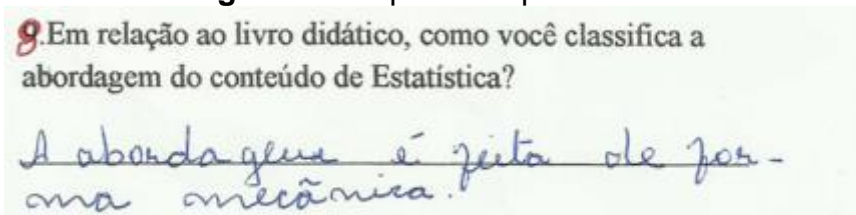 8.Em relação ao livro didático, como você classifica a
abordagem do conteúdo de Estatística?
A abordagem é feita de for-
ma mecânica.